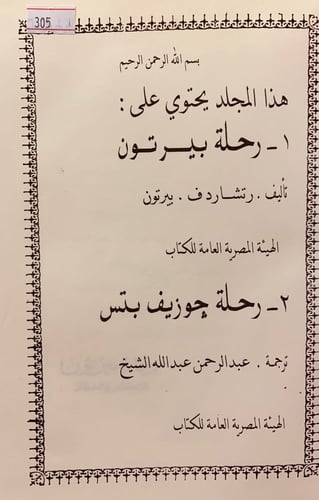 305
بسم الله الرحمن الرحيم
هذا المجلد يحتوي على :
١ - رحلة بيرتون
تأليف . رتشارد ف . بيرتون
الهيئة المصرية العامة للكتاب
٢ - رحلة جوزيف بتس
ترجمة . عبدالرحمن عبدالله الشيخ
الهيئة المصرية العامة للكتاب